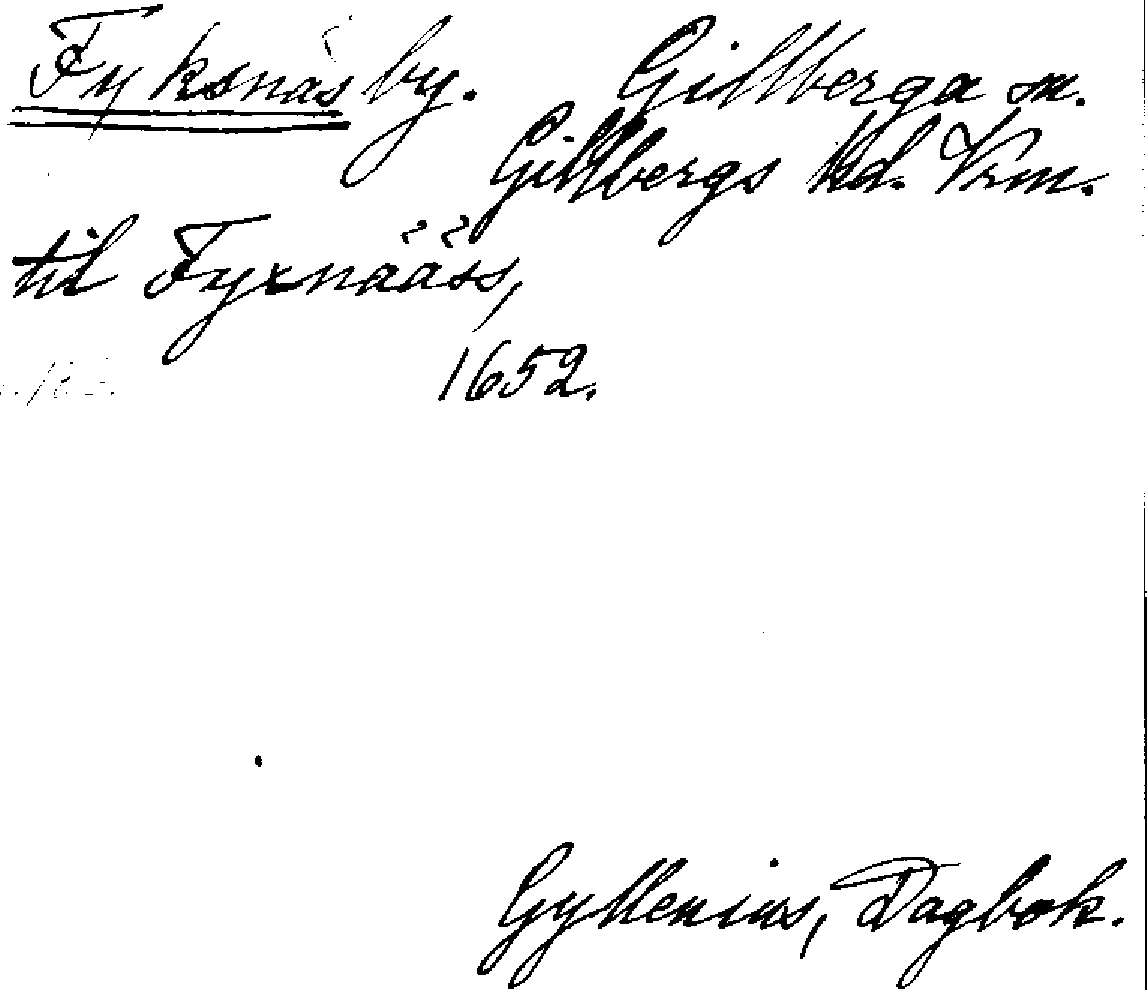 Fyksnäs by. Gillberga sn.
Gillbergs hd. Vrm.
til Fyxnääss,
1652.
Gyllenius, Dagbok.